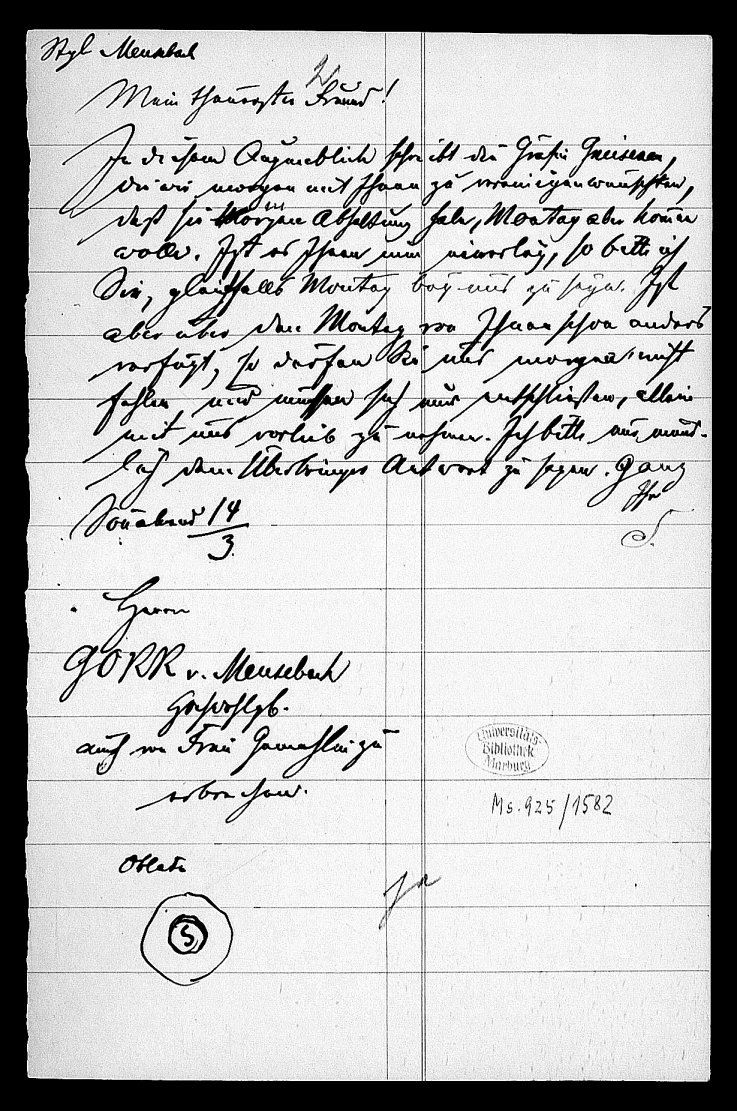 Slg Meusebach
Mein theuerster Freund!
In diesem Augenblick schreibt die Gräfin Gneisenau,
die wir morgen mit Ihnen zu vereinigen wünschten,
daß sie Morgen Abhaltung habe, Montag aber kommen
wolle. Ist es Ihnen nun einerley, so bitte ich
Sie, gleichfalls Montag bey uns zu seyn. Ist
aber über den Montag von Ihnen schon anders
verfügt, so dürfen Sie uns morgen nicht
fehlen und müssen sich nur entschließen, allein
mit uns vorlieb zu nehmen. Ich bitte nur münd-
lich dem Überbringer Antwort zu sagen. Ganz
Ihr
S.
Sonabend 14/3.
Herrn
GORR v. Meusebach
Hochwohlgb.
auch von Frau Gemahlin zu
erbrechen.
Oblate
S
Ja
Universitäts-
Bibliothek
Marburg
Ms. 925/1582